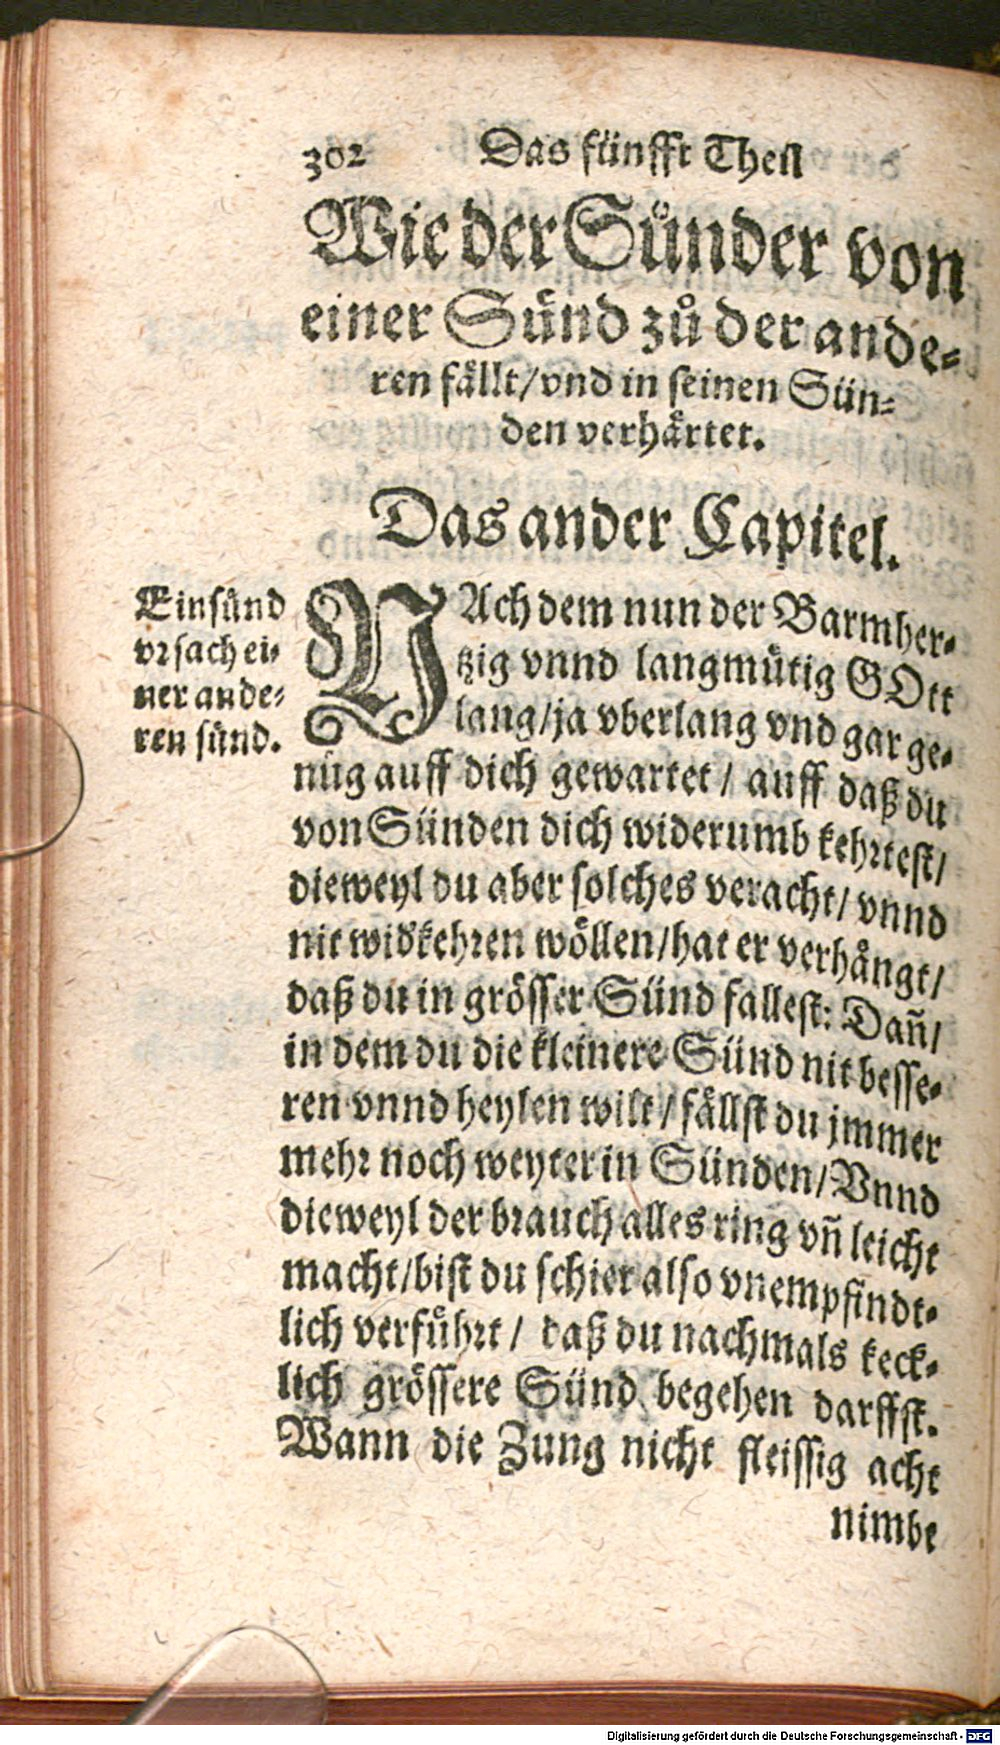 302 Das fünfft Theil
Wie der Sünder von
einer Sünd zů der ande-
ren fållt/ vnd in seinen Sün-
den verhårtet.
Das ander Capitel.
Ein sünd
vrsach ei-
ner ande-
ren sünd.
NAch dem nun der Barmher-
tzig vnnd langmütig GOtt
lang/ ja vberlang vnd gar ge-
nůg auff dich gewartet/ auff daß du
von Sünden dich widerumb kehrtest/
dieweyl du aber solches veracht/ vnnd
nit widkehren wöllen/ hat er verhångt/
daß du in grösser Sünd fallest: Dañ/
in dem du die kleinere Sünd nit besse-
ren vnnd heylen wilt/ fållst du jmmer
mehr noch weyter in Sünden/ Vnnd
dieweyl der brauch alles ring vñ leicht
macht/ bist du schier also vnempfindt-
lich verführt/ daß du nachmals keck-
lich grössere Sünd begehen darffst.
Wann die Zung nicht fleissig acht
nimbt
Digitalisierung gefördert durch die Deutsche Forschungsgemeinschaft - DFG